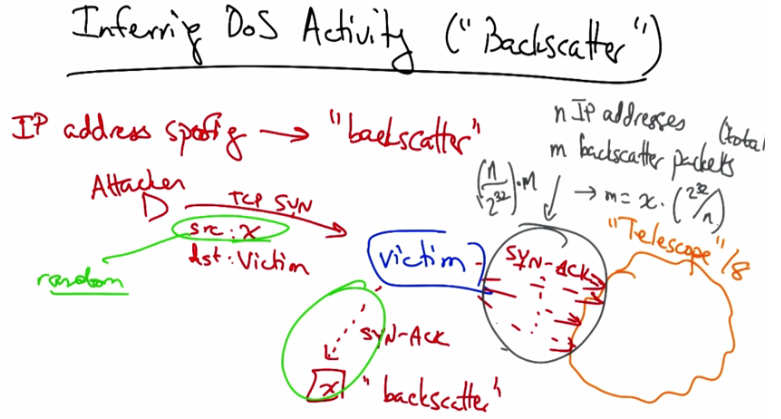 Inferring DoS Activity ("Backscatter")
IP address spoofing → "backscatter"
n IP addresses (total
m backscatter packets
(n/2^32)·m → m = x·(2^32/n)
Attacker
TCP SYN
src: x
dst: Victim
random
victim
SYN-ACK
"Telescope" /8
SYN-ACK
x "backscatter"